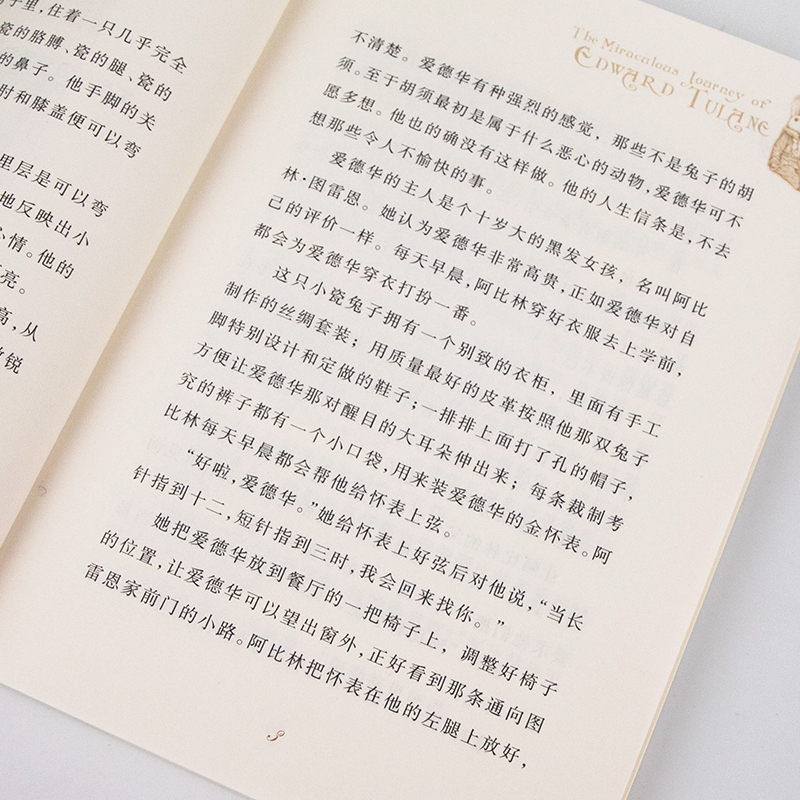 子里，住着一只几乎完全
瓷的胳膊、瓷的腿、瓷的
的鼻子。他手脚的关
时和膝盖便可以弯
里层是可以弯
地反映出小
心情。他的
亮。
高，从
敏锐
The Miraculous Journey of
EDWARD TULANE
不清楚。爱德华有种强烈的感觉，那些不是兔子的胡
须。至于胡须最初是属于什么恶心的动物，爱德华可不
愿多想。他也的确没有这样做。他的人生信条是，不去
想那些令人不愉快的事。
爱德华的主人是个十岁大的黑发女孩，名叫阿比
林·图雷恩。她认为爱德华非常高贵，正如爱德华对自
己的评价一样。每天早晨，阿比林穿好衣服去上学前，
都会为爱德华穿衣打扮一番。
这只小瓷兔子拥有一个别致的衣柜，里面有手工
制作的丝绸套装；用质量最好的皮革按照他那双兔子
脚特别设计和定做的鞋子；一排排上面打了孔的帽子，
方便让爱德华那对醒目的大耳朵伸出来；每条裁制考
究的裤子都有一个小口袋，用来装爱德华的金怀表。阿
比林每天早晨都会帮他给怀表上弦。
“好啦，爱德华。”她给怀表上好弦后对他说，“当长
针指到十二，短针指到三时，我会回来找你。”
她把爱德华放到餐厅的一把椅子上，调整好椅子
的位置，让爱德华可以望出窗外，正好看到那条通向图
雷恩家前门的小路。阿比林把怀表在他的左腿上放好，
3